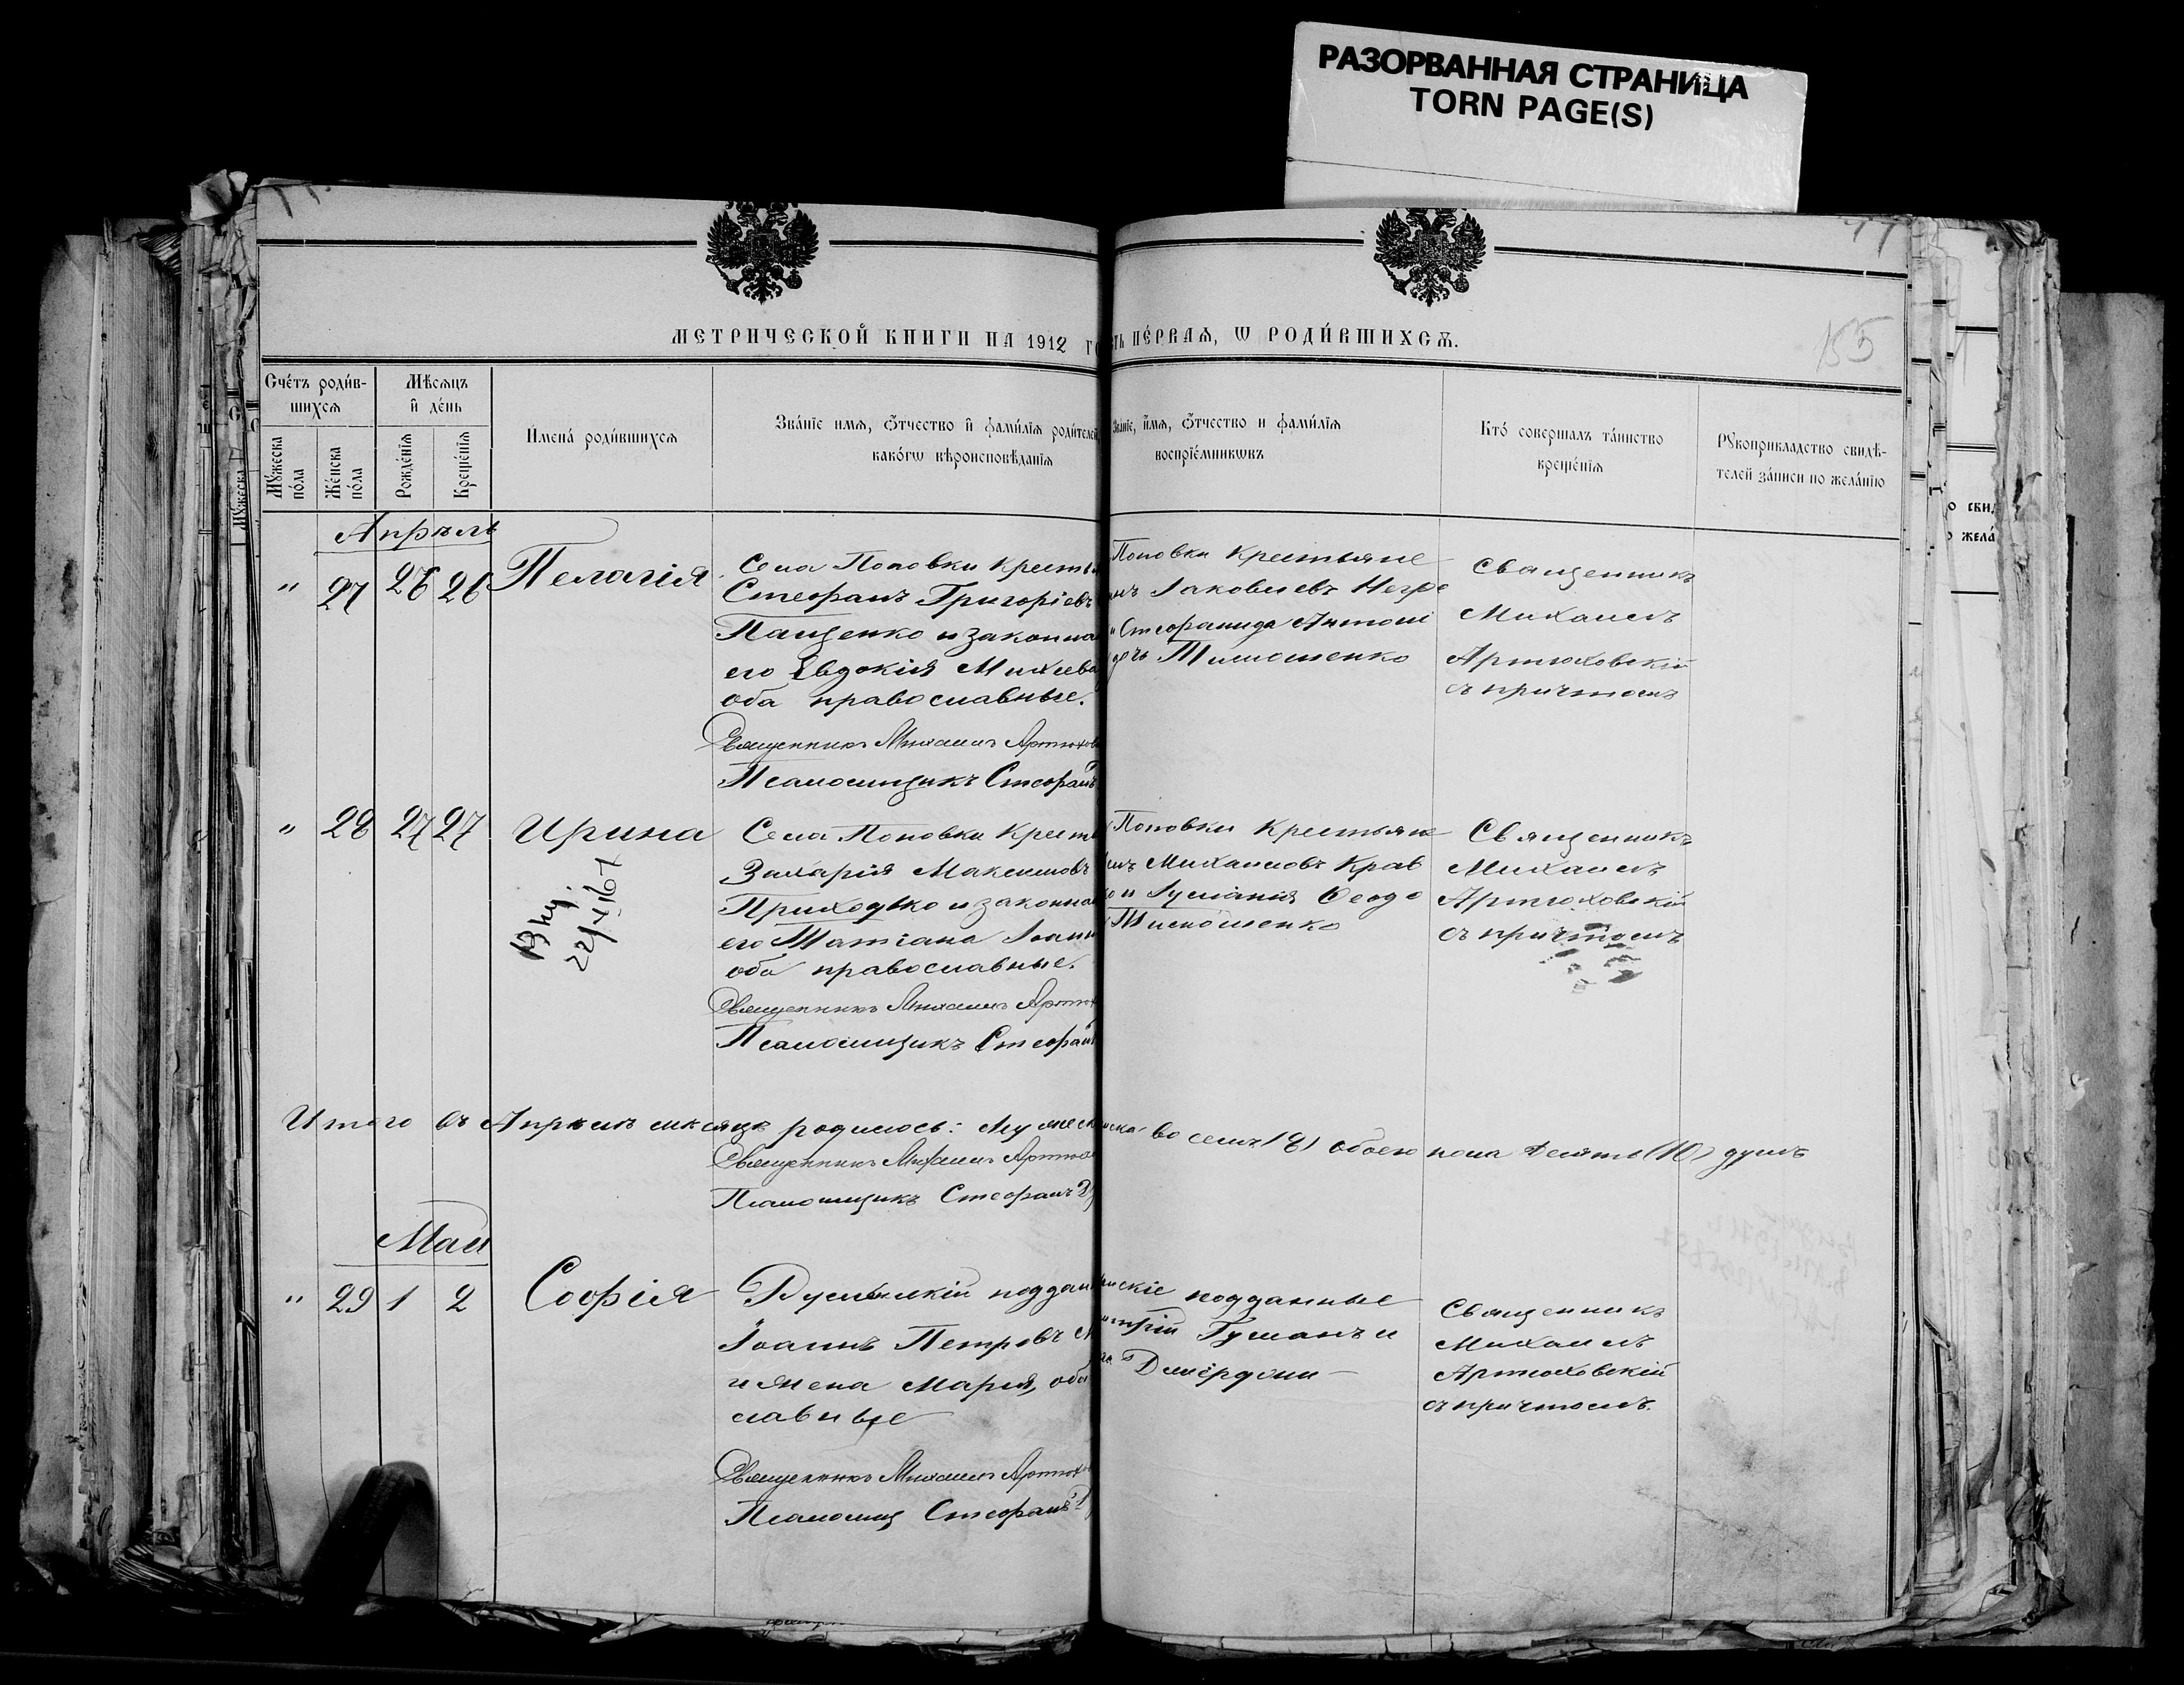 РАЗОРВАННАЯ СТРАНИЦА
TORN PAGE(S)
МЕТРИЧЕСКОЙ КНИГИ НА 1912
ПЕ́РВАѦ, Ѡ РОДИ́ВШИХСѦ.
155
Сче́тъ роди́в-
шихсѧ
Мꙋ́жеска
по́ла
Же́нска
по́ла
Мѣ́сѧцъ
и҆ де́нь
Рожде́нїѧ
Креще́нїѧ
И҆мена̀ роди́вшихсѧ
Зва́нїе имѧ, ѻ҆́тчество и҆ фами́лїѧ роди́телей
како́гѡ вѣроисповѣ́данїѧ
Зва́нїе, и҆́мѧ, ѻ҆́тчество и фами́лїѧ
воспрїе́мникѡвъ
Кто̀ совершалъ та́инство
креще́нїѧ
Рꙋкоприкладство свидѣ-
телей за́писи по жела́нїю
Апрѣль
" 27 26 26 Пелагія
Села Поповки Кресть
Стефанъ Григоріевъ
Пащенко и законна
его Евдокія Михеева
оба православные.
Священникъ Михаилъ Артюхов
Псаломщикъ Стефанъ
Поповки Крестьяне
Іаковлевъ
и Стефанида Антоні
Тимошенко
Священникъ
Михаилъ
Артюховскій
съ причтомъ
" 28 27 27 Ирина
Села Поповки Кресть
Захарія Максимовъ
Приходько и законна
его Татіана Іоанн
оба православные.
Священникъ Михаилъ Артюх
Псаломщикъ Стефанъ
Поповки Крестьяне
Михаиловъ Крав
и Іуліанія Ѳеодо
Тимошенко
Священникъ
Михаилъ
Артюховскій
съ причтомъ
Итого въ Апрѣлѣ мѣсяцѣ родилось: Мужеск
восемь (8) обоего пола десять (10) душъ
Священникъ Михаилъ Артюхо
Псаломщикъ Стефанъ
Май
" 29 1 2 Софія
поддан
Іоаннъ Петровъ
и жена Марія, оба
славные
Священникъ Михаилъ Артюхо
Псаломщ Стефанъ
подданные
Гуманъ и
Священникъ
Михаилъ
Артюховскій
съ причтомъ.